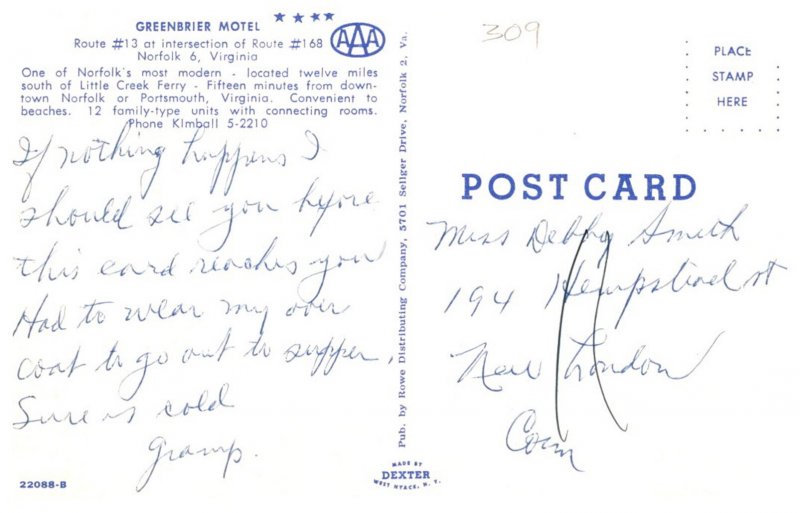 GREENBRIER MOTEL
AAA
Route #13 at intersection of Route #168
Norfolk 6, Virginia
One of Norfolk's most modern - located twelve miles
south of Little Creek Ferry - Fifteen minutes from down-
town Norfolk or Portsmouth, Virginia. Convenient to
beaches. 12 family-type units with connecting rooms.
Phone KImball 5-2210
If nothing happens I
should see you before
this card reaches you
Had to wear my over
coat to go out to supper.
Sure is cold
Gramp.
22088-B
Pub. by Rowe Distributing Company, 5701 Sellger Drive, Norfolk 2, Va.
MADE BY
DEXTER
WEST NYACK, N. Y.
309
PLACE
STAMP
HERE
POST CARD
Miss Debby Smith
194 Hempstead st
New London
Conn